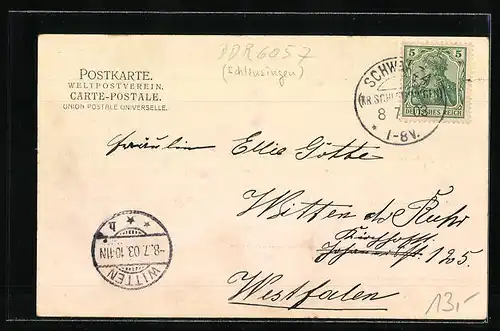 DDR 6057
(Schleusingen)
POSTKARTE.
WELTPOSTVEREIN.
CARTE-POSTALE.
UNION POSTALE UNIVERSELLE.
5 5
DEUTSCHES REICH
(KR. SCHLEUSINGEN)
8 7
* 1-8V.
Fräulein Ella Götte
Witten a/d Ruhr
125.
Westfalen
* * h
-8.7.03.10-11N
WITTEN
13,-